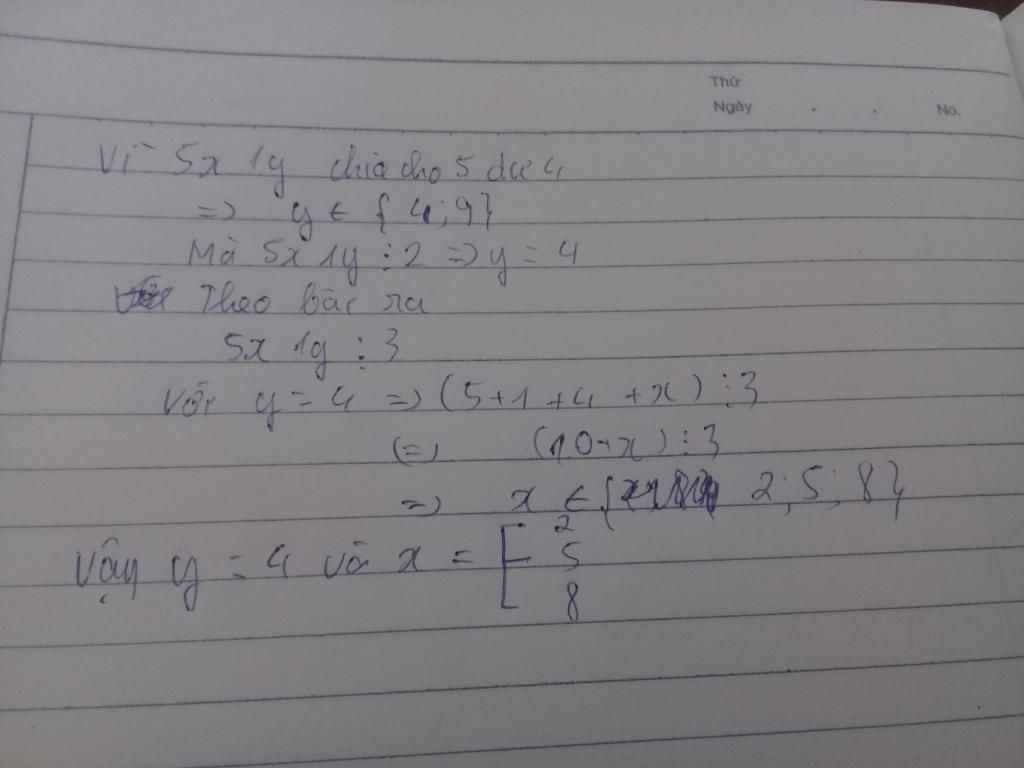 Thứ
Ngày . . No.
Vì 5x1y chia cho 5 dư 4
=> y ∈ {4;9}
Mà 5x1y ⋮ 2 => y = 4
Theo bài ra
5x1y ⋮ 3
Với y = 4 => (5+1+4+x) ⋮ 3
(=) (10+x) ⋮ 3
=> x ∈ { 2; 5; 8}
2
Vậy y = 4 và x = [ 5
8